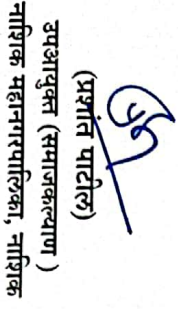 (प्रशांत पाटील)
उपआयुक्त (समाजकल्याण )
नाशिक महानगरपालिका, नाशिक